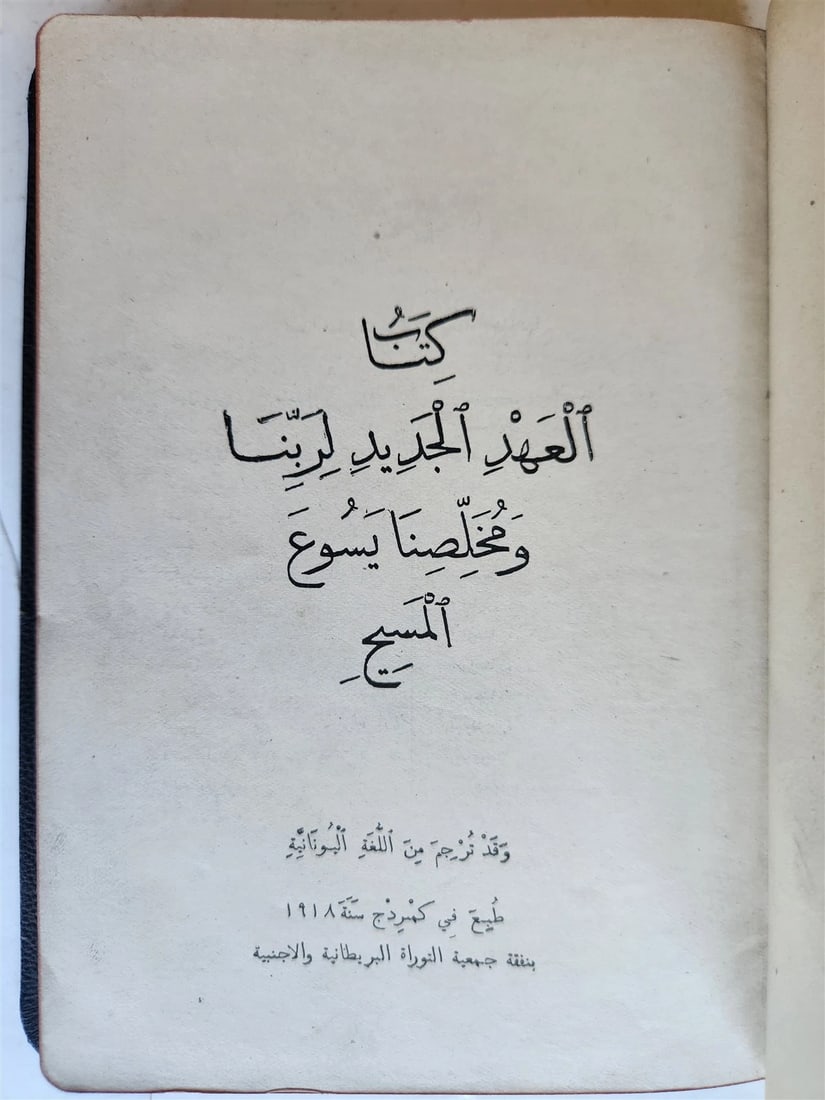 كِتَابُ
ٱلْعَهْدِ ٱلْجَدِيدِ لِرَبِّنَا
وَمُخَلِّصِنَا يَسُوعَ
ٱلْمَسِيحِ
وَقَدْ تُرْجِمَ مِنَ ٱللُّغَةِ ٱلْيُونَانِيَّةِ
طُبِعَ فِي كَمْبِرِدْج سَنَةَ ١٩١٨
بنفقة جمعية التوراة البريطانية والاجنبية